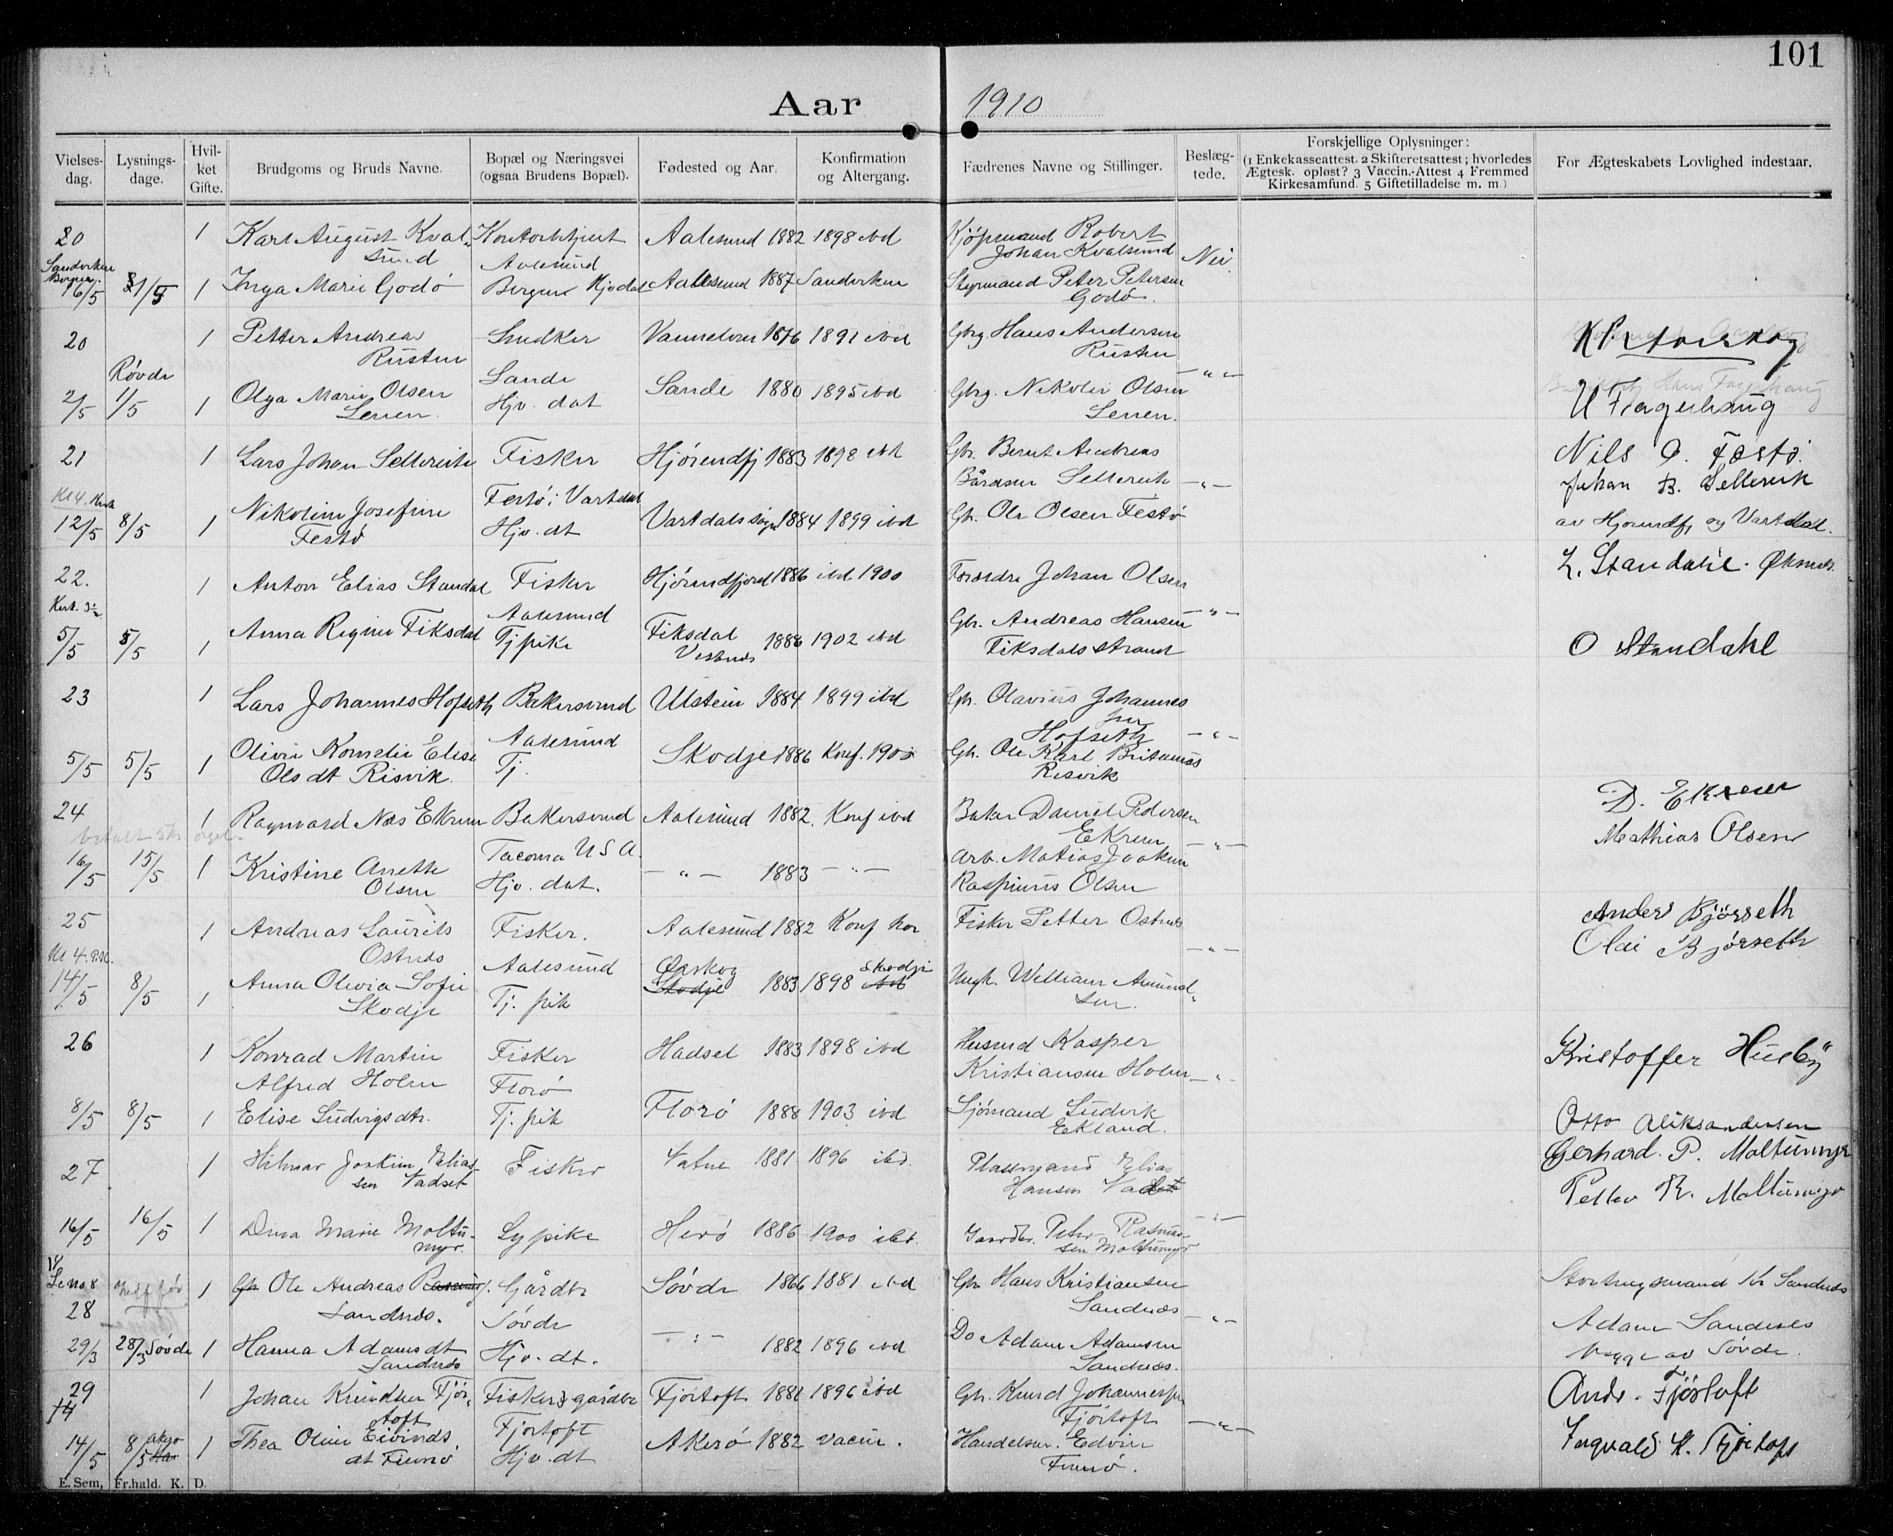 101
Aar 1910
Vielses-dag. Lysnings-dage. Hvil-ket Gifte. Brudgoms og Bruds Navne. Bopæl og Næringsvei (ogsaa Brudens Bopæl). Fødested og Aar. Konfirmation og Altergang. Fædrenes Navne og Stillinger. Beslæg-tede. Forskjellige Oplysninger: (1 Enkekasseattest. 2 Skifteretsattest; hvorledes Ægtesk. opløst? 3 Vaccin.-Attest 4 Fremmed Kirkesamfund. 5 Giftetilladelse m. m.) For Ægteskabets Lovlighed indestaar.
20 1 Karl August Kval- Kontorbetjent Aalesund 1882 1898 ibd Kjøpmand Robert
sund Aalesund Johan Kvalsund Nei
Sandviken Bergen
16/5 1/5 1 Inga Marie Godø Bergen Hjv dat Aalesund 1887 Sandviken Styrmand Peter Petersen
Godø.
20 1 Petter Andreas Snedker Vannelven 1876 1891 ibd Gbrg Hans Andersen
Rusten Rusten
Røvde Sande
2/5 1/5 1 Olga Marie Olsen Hjv. dat Sande 1880 1895 ibd Gbrg. Nikolai Olsen - " - U Fagerhaug
21 1 Lars Johan Sellereite Fisker Hjørendfj 1883 1898 ibd Gbr. Bernt Andreas Nils O. Festø.
Festø i Vartdal Bårdsen Sellereite - " - Johan B. Sellereite
Kl 4. Kirk
12/5 8/5 1 Nikoline Josefine Hjv. dt Vartdals sogn 1884 1899 ibd Gbr. Ole Olsen Festø av Hjørendfj og Vartdal.
Festø
22. 1 Anton Elias Standal Fisker Hjørendfjord 1886 ibd 1900 Forældre Johan Olsen L. Standahl. Øksnes
Aalesund
5/5 5/5 1 Anna Regine Fiksdal Tj pike Fiksdal 1886 1902 ibd Gbr. Andreas Hansen - " -
Vestnes Fiksdalsstrand O Standahl
23 1 Lars Johannes Hofseth Bakersvend Ulstein 1884 1899 ibd Gbr. Olavius Johannes
sen
Aalesund Hofseth - " -
5/5 5/5 1 Olivie Kornelie Elise Tj. Skodje 1886 Konf. 1900 Gbr. Ole Karl Britanus
Ols dt Risvik. Risvik
24 1 Ragnvard Nas Ekrem Bakersvend Aalesund 1882 Konf ibd Baker Daniel Pedersen D. Ekrem
Tacoma U S A. Ekrem - " - Mathias Olsen
16/5 15/5 1 Kristine Anette Hjv. dat. - " - 1883 - " - Arb. Matias Joakim
Olsen Rasmus Olsen
25 1 Andreas Laurits Fisker. Aalesund 1882 Konf her Fisker Petter Ostnes Anders Bjørseth
Ostnes Olai Bjørseth
Aalesund Ørskog Skodje - " -
14/5 8/5 1 Anna Olivia Sofie Tj. pik Skodje 1883 1898 ibd Ungk. William Amund-
Skodje sen.
26 1 Konrad Martin Fisker Hadsel 1883 1898 ibd Husmd Kasper Kristoffer Husby
Alfred Holm Florø Kristiansen Holm - " -
8/5 8/5 1 Elise Ludvigsdtr. Tj. pik Florø 1888 1903 ibd Sjømand Ludvik Otto Aliksandersen
Ekland.
27 1 Hilmar Joakim Elias- Fisker Vatne 1881 1896 ibd. Plassmand Elias Gerhard. P. Moltumyr
sen Vadset Hansen Vadset Petter R. Moltumyr
16/5 16/5 1 Dina Marie Moltu- Sypike Herø 1886 1900 ibd. Gaardbr. Peter Rasmus- - " -
myr. sen Moltumyr
1 Gbr Ole Andreas Gårdbr Søvde 1866 1881 ibd Gbr Hans Kristiansen Stortingsmand Kr Sandnes
28 Sandnes. Søvde Sandnes - " - Adam Sandnes
29/3 28/3 Søvde 1 Hanna Adamsdt Hjv. dt. - " - 1882 1896 ibd Do Adam Adamsen begge av Søvde.
Sandnes Sandnes.
29 1 Johan Knudsen Fjør- Fisker & gårdbr Fjørtoft 1881 1896 ibd Gbr. Knud Johannessen Andr. Fjørtoft
toft Fjørtoft Fjørtoft - " -
14/5 8/5 1 Thea Oline Eivinds Hjv. dt Akerø 1882 vaccin. Handelsm. Edvin Ingvald K. Fjørtoft
dt Finnø Finnø.
E. Sem, Fr.hald. K. D.